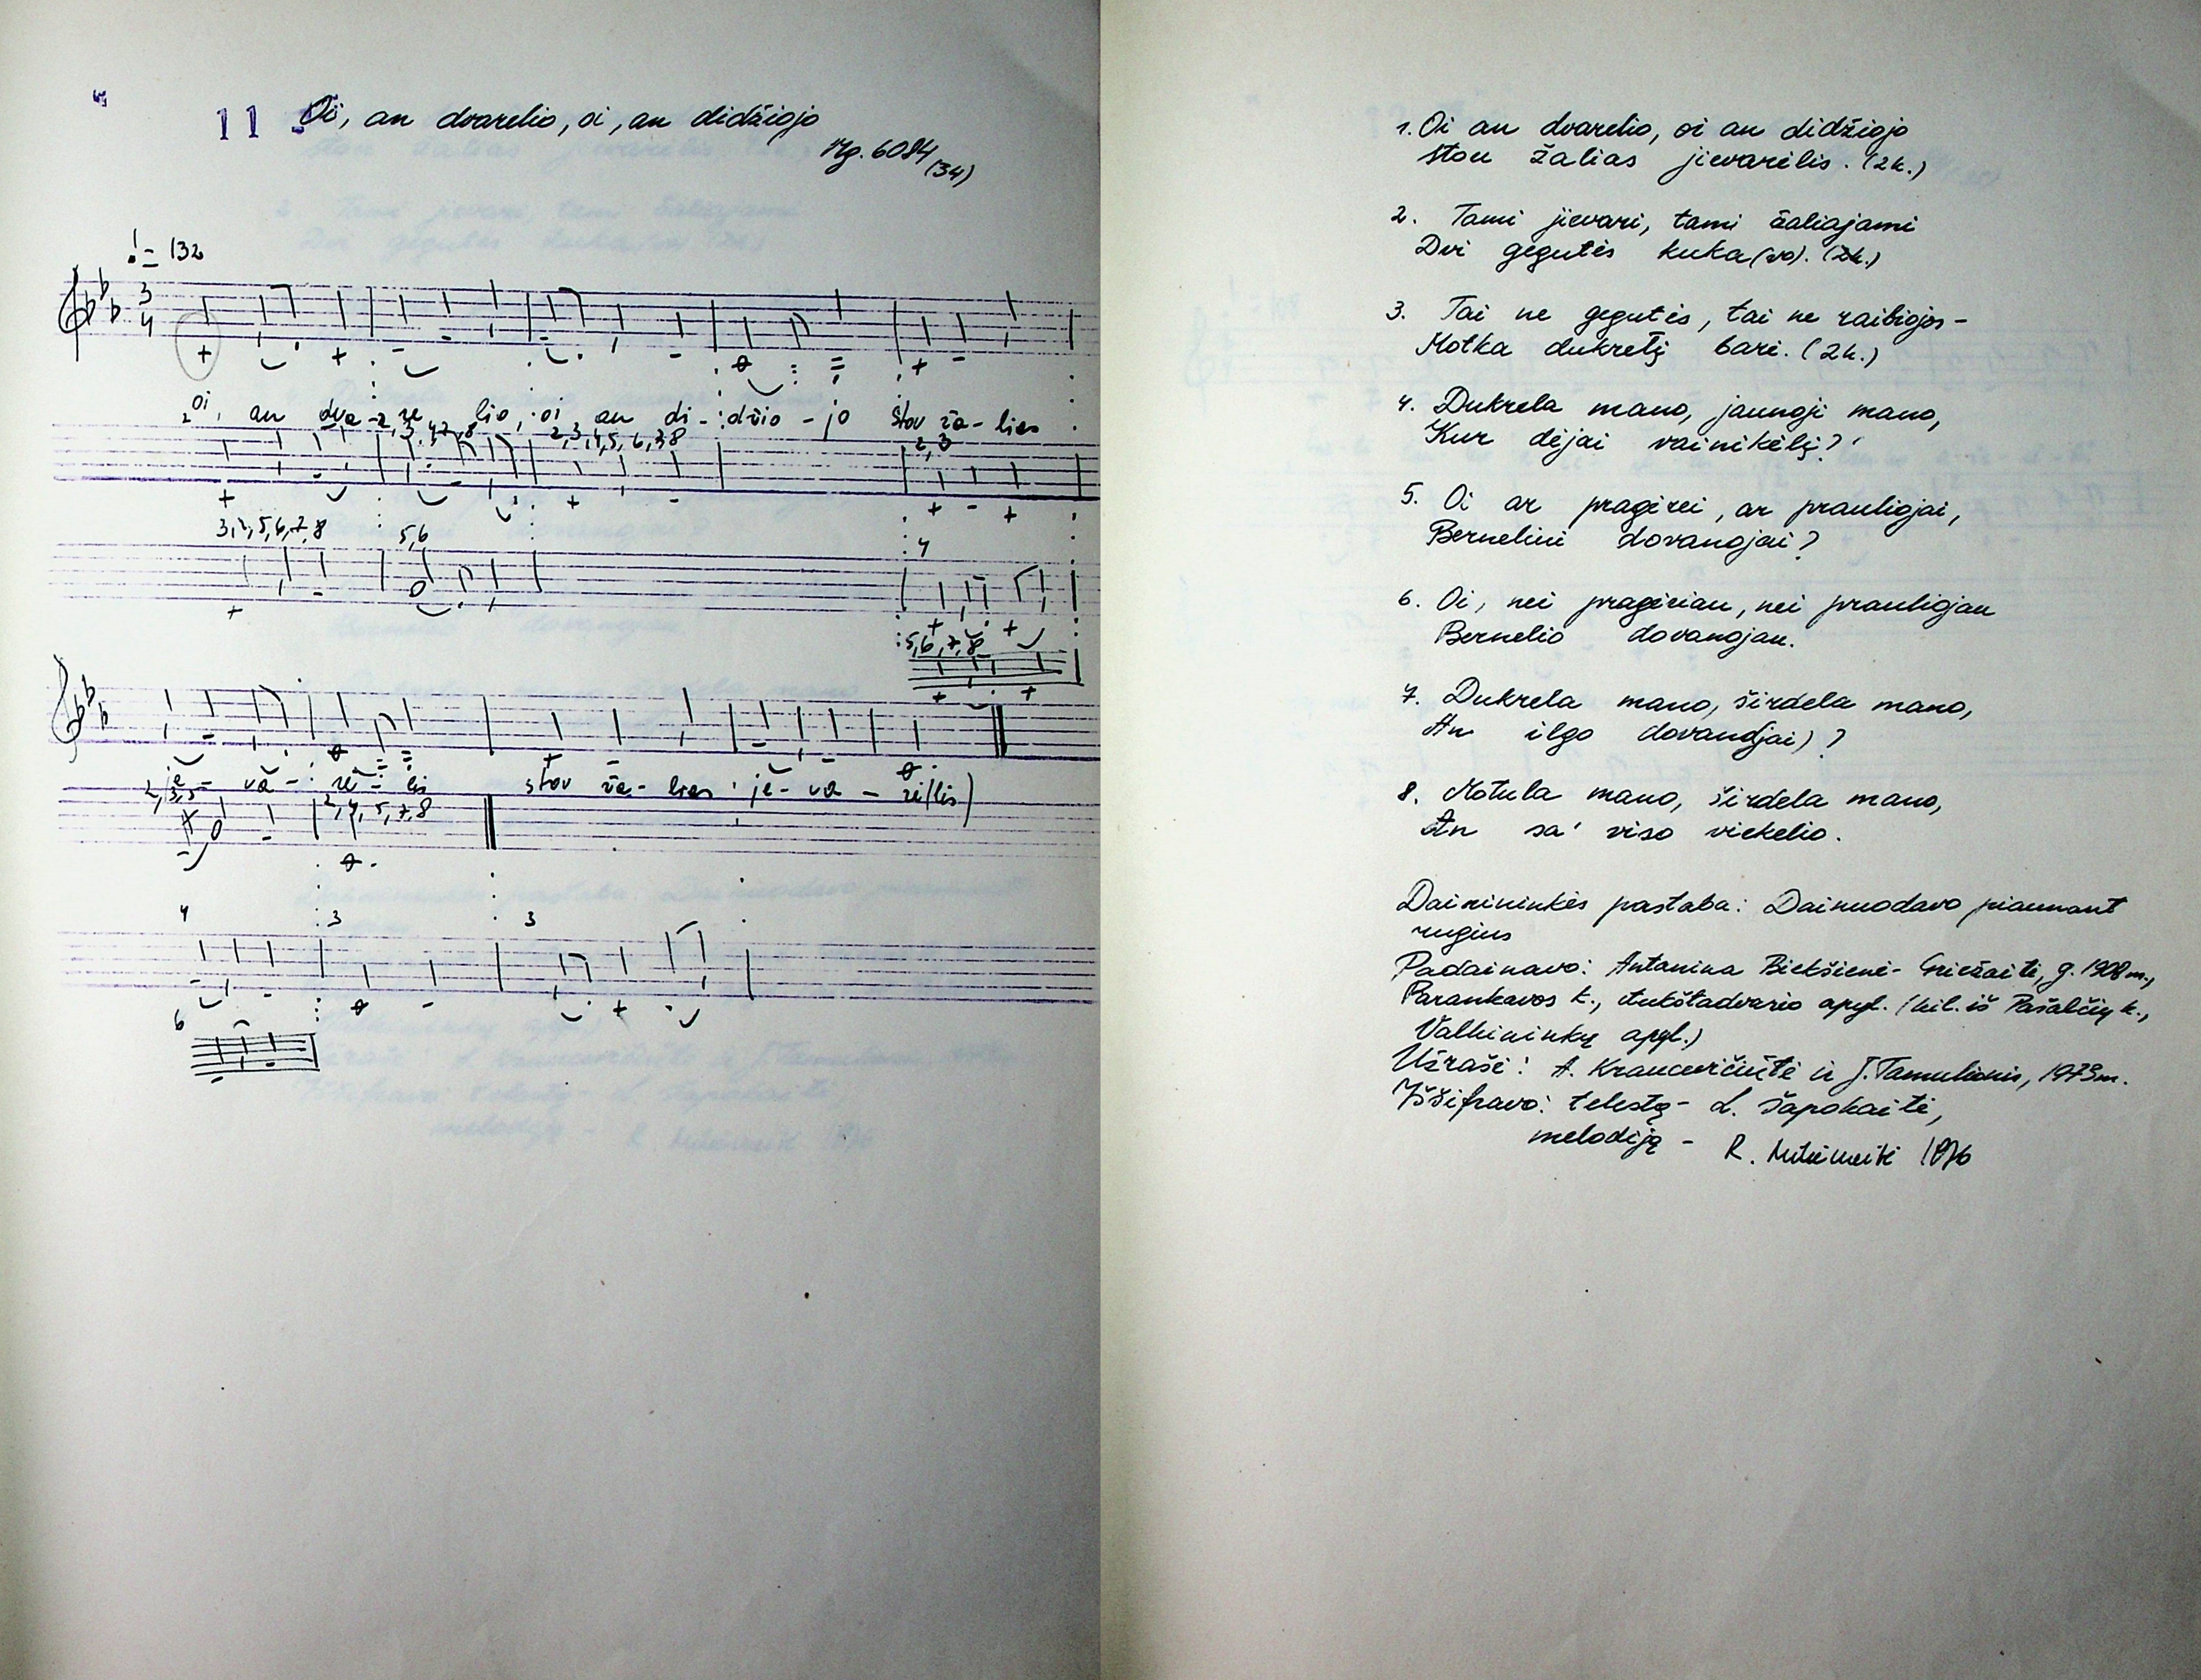 11
Oi, an dvarelio, oi, an didžiojo
Mg. 6084 (34)
= 132
3
4
Oi, an dva - re - lio, oi an di - džio - jo stov ža - lias
2
2, 3, 4, 5, 6, 7, 8
2, 3
3, 4, 5, 6, 7, 8
5, 6
4
5, 6, 7, 8
je - va - rė - lis stov ža - lias je - va - rė(lis)
2, 3, 5
2, 4, 5, 7, 8
4
3
3
6
1. Oi an dvarelio, oi an didžiojo
Stou žalias jievarėlis. (2k.)
2. Tami jievari, tami žaliajami
Dvi gegutės kuka(vo). (2k.)
3. Tai ne gegutės, tai ne raibiojos -
Motka dukretį barė. (2k.)
4. Dukrela mano, jaunoji mano,
Kur dėjai vainikėlį?
5. Oi ar pragėrei, ar prauliojai,
Berneliui dovanojai?
6. Oi, nei pragėriau, nei prauliojau
Bernelio dovanojau.
7. Dukrela mano, širdela mano,
An ilgo dovano(jai)?
8. Motula mano, širdela mano,
An sa' viso viekelio.
Dainininkės pastaba: Dainuodavo piaunant
rugius
Padainavo: Antanina Biekšienė - Griežaitė, g. 1908 m.,
Parankavos k., Aukštadvario apyl. (kil. iš Pašalčių k.,
Valkininkų apyl.)
Užrašė: A. Krancevičiūtė ir J. Tamulionis, 1973 m.
Iššifravo: tekstą - L. Šapokaitė,
melodiją - R. 1976